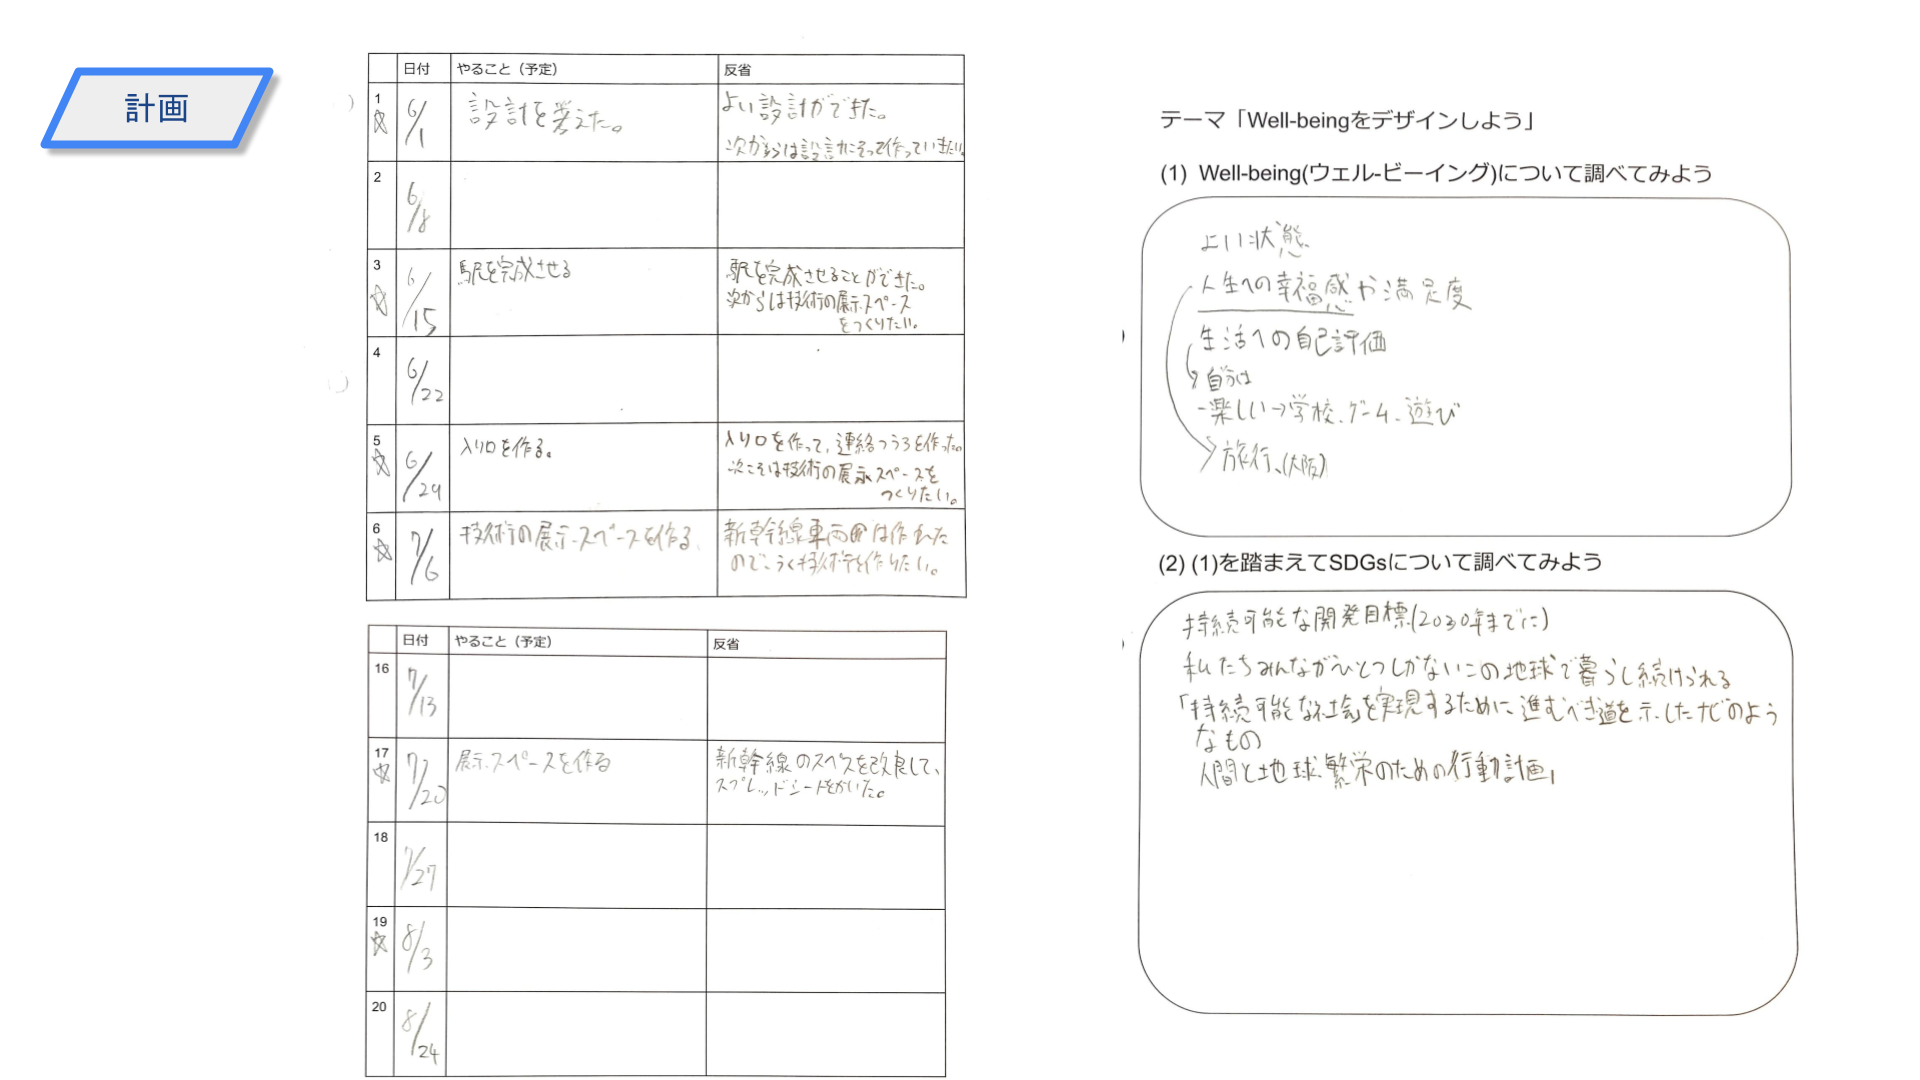 計画
日付 やること（予定） 反省
1 6/1 設計を考えた。 よい設計ができた。
次からは設計にそって作っていきたい。
2 6/8
3 6/15 駅を完成させる 駅を完成させることができた。
次からは技術の展示スペース
をつくりたい。
4 6/22
5 6/29 入り口を作る。 入り口を作って、連絡つうろを作った。
次こそは技術の展示スペースを
つくりたい。
6 7/6 技術の展示スペースを作る 新幹線車両は作れた
のでこうく技術を作りたい。
日付 やること（予定） 反省
16 7/13
17 7/20 展示スペースを作る 新幹線のスペスを改良して、
スプレッドシートをかいた。
18 7/27
19 8/3
20 8/24
テーマ「Well-beingをデザインしよう」
(1) Well-being(ウェル-ビーイング)について調べてみよう
よい状態
人生への幸福感や満足度
生活への自己評価
自分は
楽しい→学校、ゲーム、遊び
旅行、(大阪)
(2) (1)を踏まえてSDGsについて調べてみよう
持続可能な開発目標(2030年までに)
私たちみんながひとつしかないこの地球で暮らし続けられる
「持続可能な社会を実現するために進むべき道を示したナビのよう
なもの
人間と地球、繁栄のための行動計画」